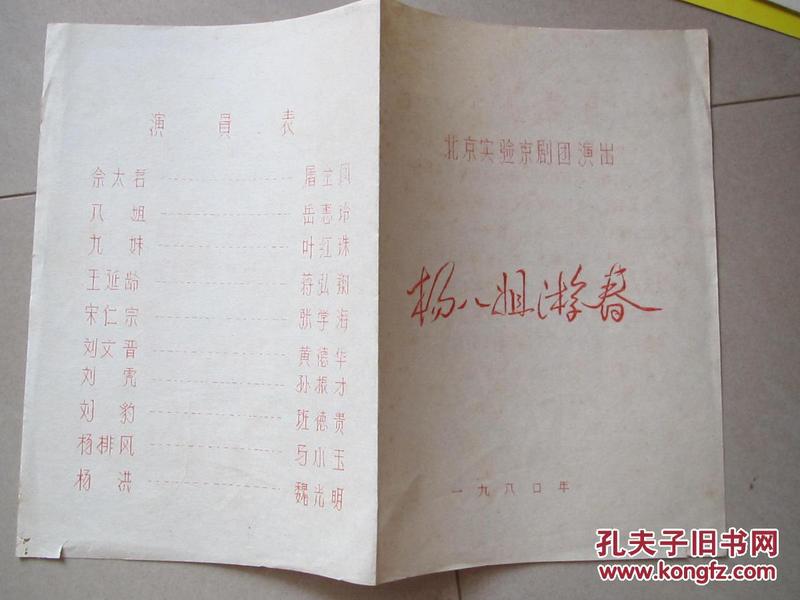 演員表
佘太君 屠立凤
八姐 岳惠玲
九妹 叶红珠
王延龄 蒋弘翔
宋仁宗 张学海
刘文晋 黄德华
刘虎 孙振才
刘豹 班德贵
杨排风 马小玉
杨洪 魏光明
北京实验京剧团演出
杨八姐游春
一九八〇年
孔夫子旧书网
www.kongfz.com